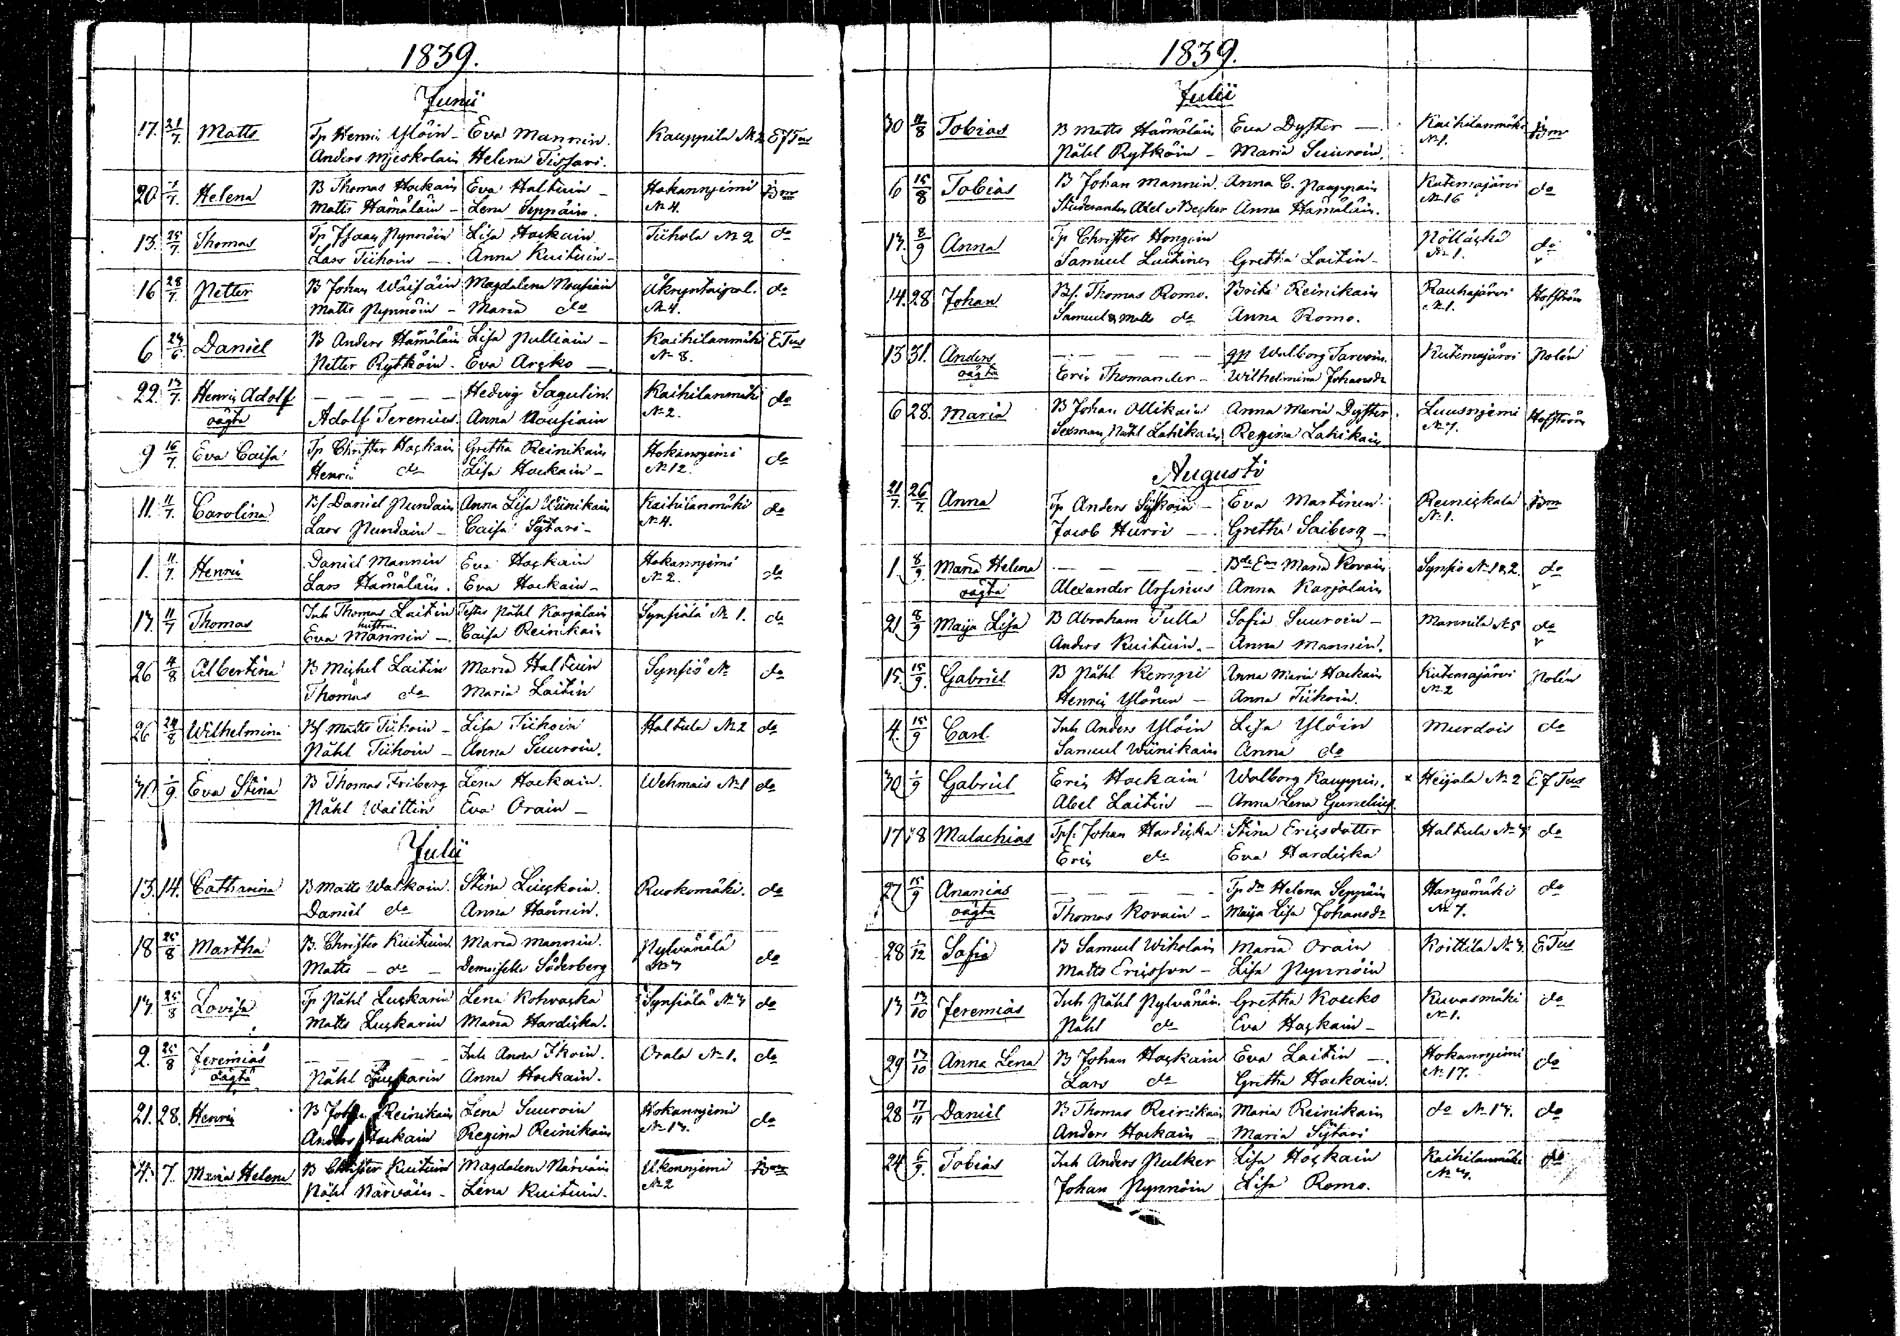 1839.
Junii
17. 21/7. Matts Tp Henric Ylöin - Eva Mannin. Kauppila No 2 EfTus
Anders Mjeskolain Helena Tissari.
20 1/7. Helena B Thomas Hockain Eva Haltuin - Hokannjemi Bm
Matts Hämäläin - Lena Seppäin. No 4.
13. 25/7. Thomas Tp Isaac Pynnöin Lisa Hockain Tiihola No 2 do
Lars Tiihoin - Anna Kuituin -
16 28/7. Petter B Johan Wäisäin Magdalena Nousiain do
Matts Pynnöin - Maria do No 4.
6 24/6. Daniel B Anders Hämäläin Lisa Pulliain - Kaihilanmäki ETus
Petter Rytköin. Eva Arcko - No 8.
22. 13/7. Henric Adolf - - - - Hedvig Sagulin. Kaihilanmäki do
oägta Adolf Terenius. Anna Nousiain No 2.
9 16/7. Eva Caisa Tp Christer Hockain Gretha Reinikain Hokannjemi do
Henric do Lisa Hockain - No 12.
11. 11/7. Carolina Bf Daniel Pundain Anna Lisa Wiinikain Kaihilanmäki do
Lars Pundain - Caisa Sÿtari - No 4.
1. 11/7. Henric Daniel Mannin Eva Hockain Hokannjemi do
Lars Hämäläin. Eva Hockain - No 2.
17. 11/7 Thomas Inh Thomas Laitin Påhl Karjalain Synsiälä No 1. do
hustru
Eva Mannin -. Caisa Reinikain
26 4/8 Albertina B Michel Laitin Maria Haltuin Synsiö No do
Thomas do Maria Laitin
26 24/8 Wilhelmina Bf Matts Tiihoin - Lisa Tiihoin Haltula No 2 do
Påhl Tiihoin - Anna Suuroin.
30 1/9. Eva Stina B Thomas Friberg Lena Hockain. Wehmais No 1 do
Påhl Waittin Eva Orain -
Julii
13. 14. Catharina B Matts Walkoin. Stina Liuckoin. Ruokomäki. do
Daniel do Anna Hännin.
18 25/8 Martha B. Christer Kuituin. Maria Mannin. Pylvänälä do
Matts - do - Demoiselle Söderberg No 7
17. 25/8 Lovisa Tp Påhl Luckarin Lena Kohvacka Synsiälä No 7 do
Matts Luckarin Maria Hardicka.
2. 25/8 Jeremias - - - - Inh Anna Ikoin. Orala No 1. do
oägta Påhl Luckarin Anna Hockain.
21. 28. Henric B Reinikain Lena Suuroin Hokannjemi do
Anders Hockain Regina Reinikain No 17.
4. 7. Maria Helena B Christer Kuituin Magdalena Närväin Ukonnjemi Bm
Påhl Närväin - Lena Kuituin. No 2
1839.
Julii
30 11/8 Tobias B Matts Hämäläin Eva Dyster -. Kaihilanmäki Bm
Påhl Rytköin - Maria Suuroin. No 1.
6 15/8 Tobias B Johan Mannin. Anna C. Pauppain Kutemajärvi do
Studeranden Axel v Becker Anna Hämäläin. No 16
17. 8/9 Anna Tp Christer Hongoin Pölläckä do
Samuel Luitinen Gretha Laitin - No 1.
14. 28 Johan Bf. Thomas Romo. Brita Reinikain Rauhajärvi Hofström
Samuel & Matts do Anna Romo. No 1.
13 31. Anders - - - - gp Walborg Tarvoin. Kutemajärvi Polén
oägta Eric Thomander - Wilhelmina Johansdr
6 28. Maria B Johan Ollikain Anna Maria Dyster. Luusnjemi Hofström
Sexman Påhl Lahikain Regina Lahikain No 7.
Augusti
21/7. 26/7. Anna Tp Anders Sÿkoin - Eva Martinen. Reinickala Bm
Jacob Hurri -. Gretha Saiberg - No 1.
1. 8/9. Maria Helena - - - - Maria Kovain Synsiö No 1 & 2. do
oägta Alexander Arsenius Anna Karjalain
21 8/9 Maija Lisa B Abraham Tulla Sofia Suuroin - Mannila No 5 do
Anders Kuituin. - Anna Mannin.
15. 15/9. Gabriel B Påhl Kemppi Anna Maria Hockain Kutemajärvi Polén
Henric Ylönen - Anna Tiihoin. No 2
4. 15/9 Carl. Inh Anders Ylöin Lisa Ylöin Murdois do
Samuel Wiinikain Anna do
30 1/9 Gabriel Eric Hockain Walborg Kauppin. x Heijala No 2 EfTus
Abel Laitin - Anna Lena Gumelius.
17 18 Malachias Tpf. Johan Hardicka Stina Ericsdotter Haltula No 7 do
Eric do Eva Hardicka
27 15/9 Ananias - - - - Tp dr Helena Seppäin Hanjamäki do
oägta Thomas Kovain - Maija Lisa Johansdr No 7.
28 1/12 Sofia B Samuel Wiholain Maria Orain Koittila No 3. ETus
Matts Ericsson - Lisa Pynnöin
13 13/10 Jeremias Inh Påhl Pylvänäin Gretha Kouko Kuvasmäki do
Påhl do Eva Hockain - No 1.
29 13/10 Anna Lena B Johan Hockain Eva Laitin -. Hokannjemi do
Lars do Gretha Hockain. No 17.
28 17/11 Daniel B Thomas Reinikain Maria Reinikain do No 17. do
Anders Hockain - Maria Sÿtari
24 6/9. Tobias Inh Anders Pulker Lisa Hockain Kaihilanmäki do
Johan Pynnöin Lisa Romo. No 7.